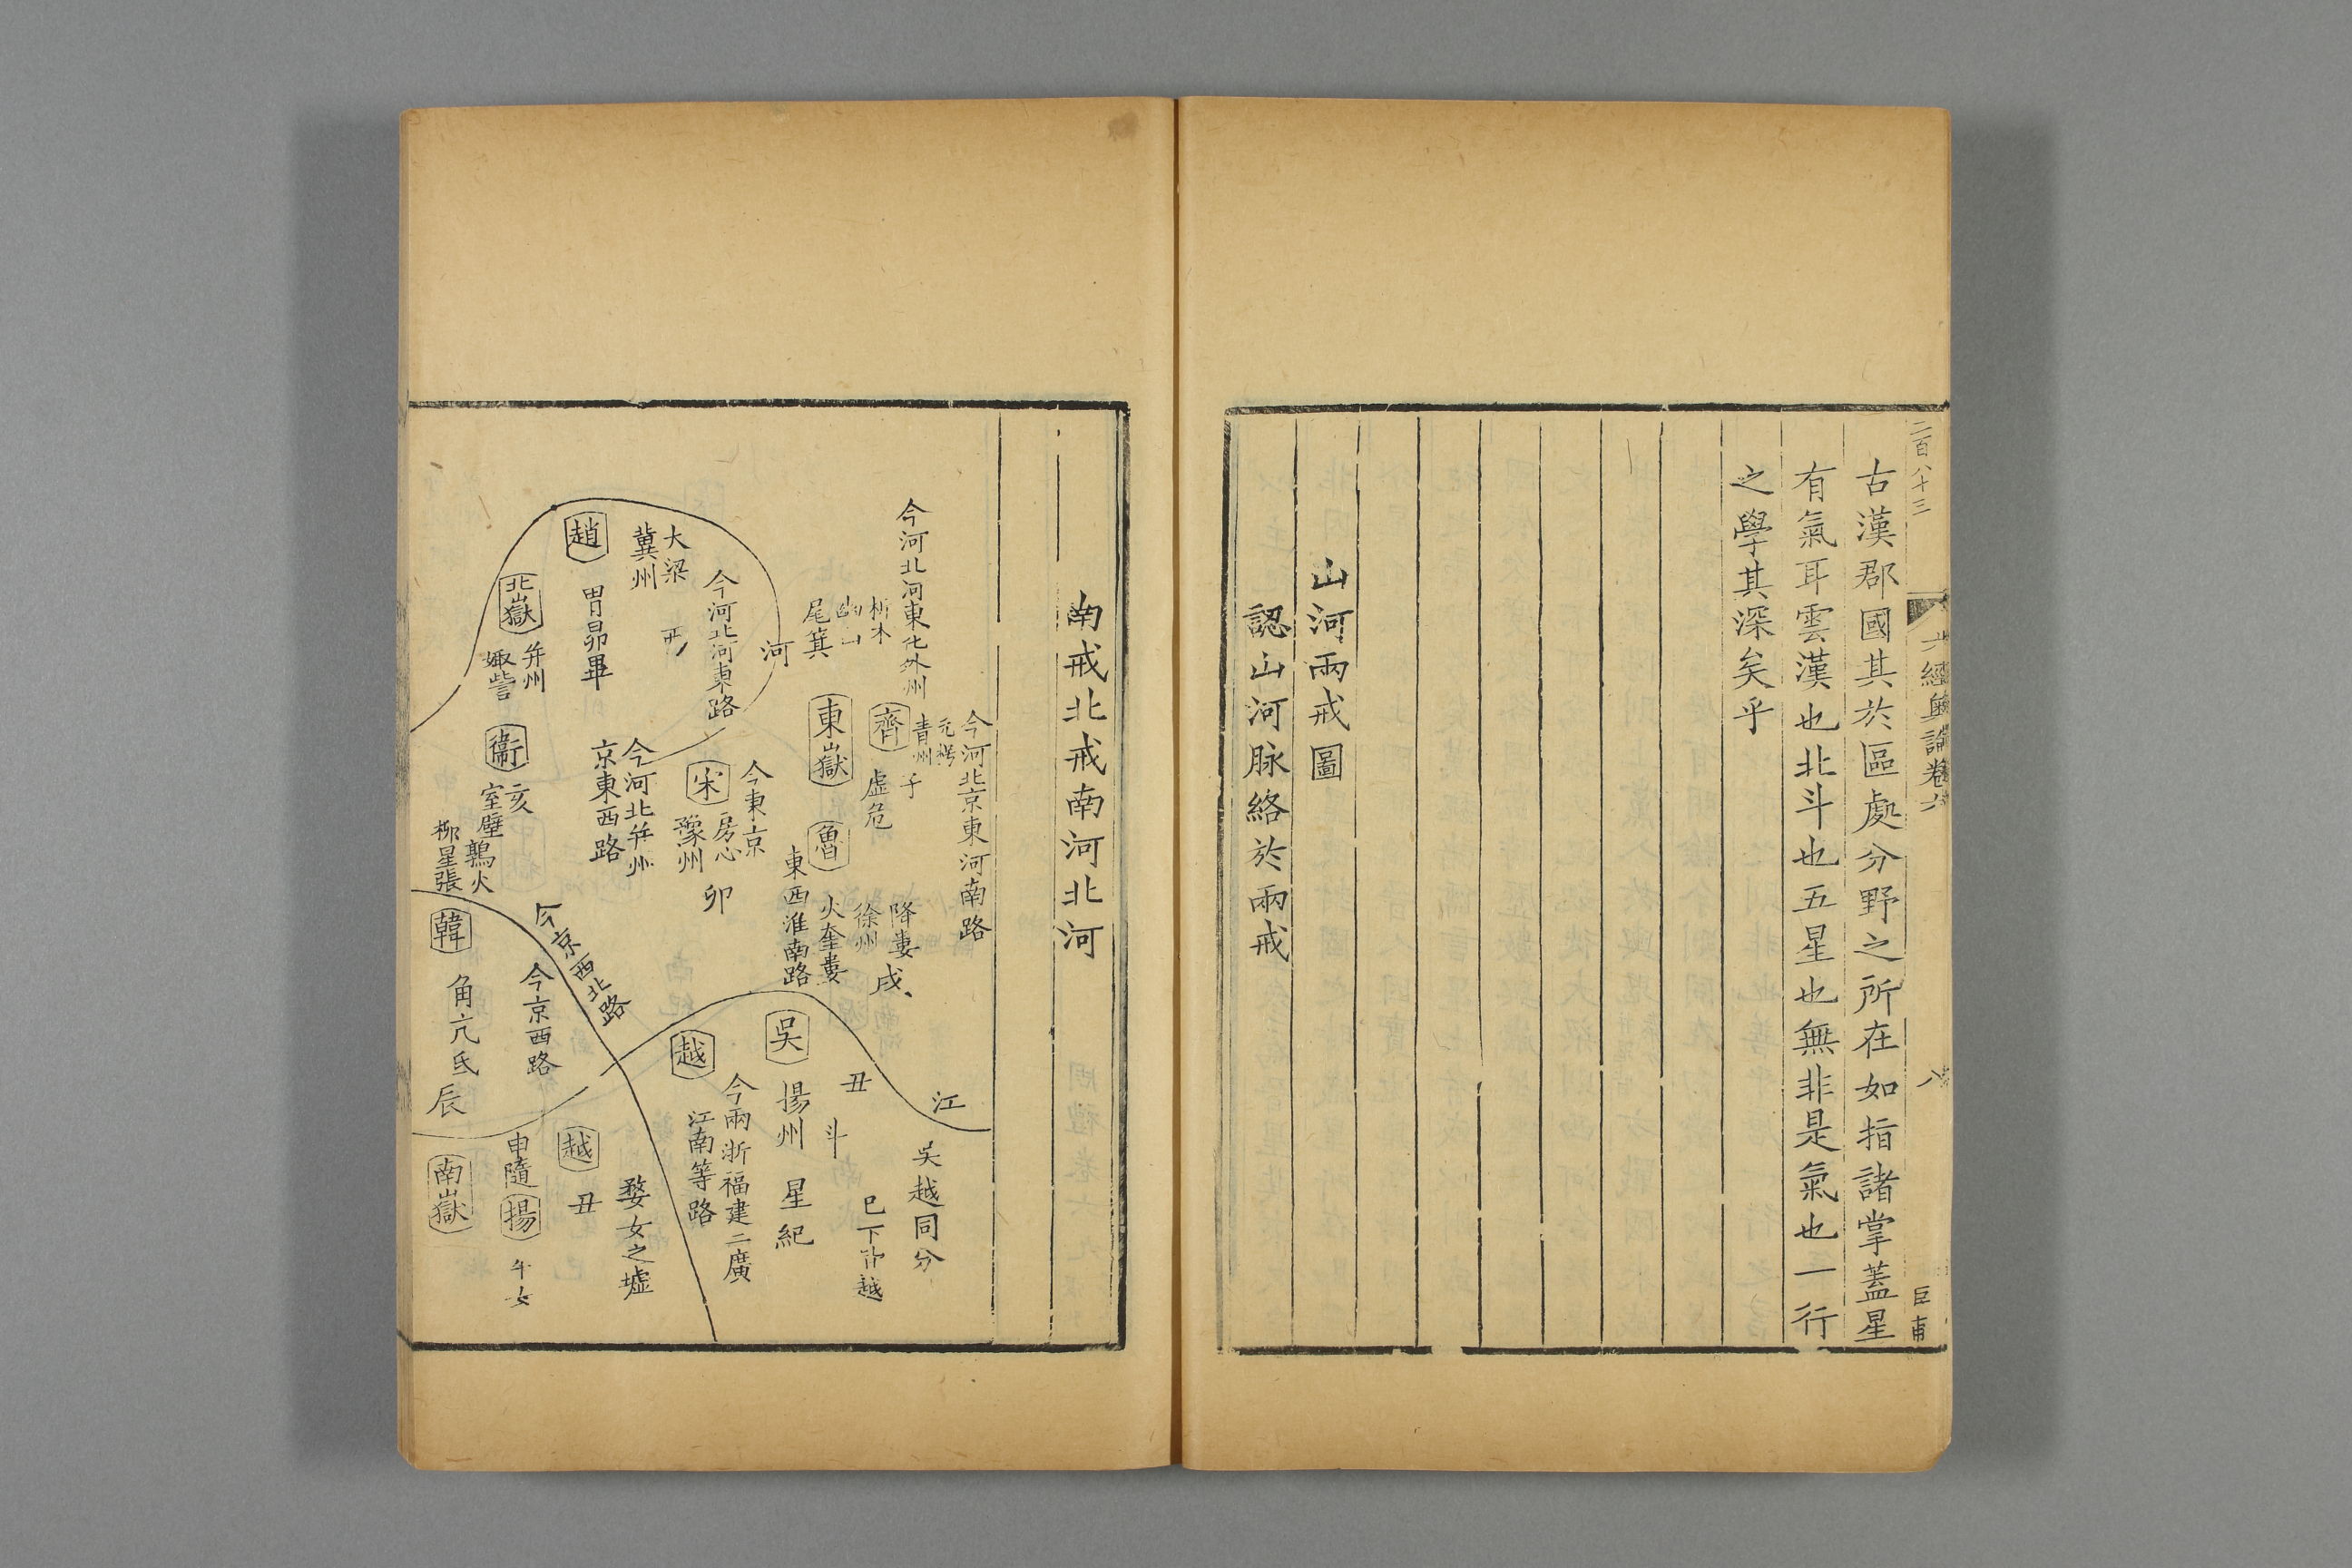 二百八十三
六經奧論卷六
八
臣甫
古漢郡國其於區處分野之所在如指諸掌蓋星
有氣耳雲漢也北斗也五星也無非是氣也一行
之學其深矣乎
山河兩戒圖
認山河脉絡於兩戒
南戒北戒南河北河
今河北京東河南路
今河北河東化外州
析木
尾箕
元枵
青州
子
齊
虛危
東嶽
魯
降婁
戌
徐州
火奎婁
東西淮南路
河
今河北河東路
大梁
冀州
趙
胃昴畢
北嶽
并州
娵訾
衞
亥
室壁
今東京
房心
宋
豫州
卯
今河北并州
京東西路
鶉火
柳星張
韓
角亢氐
辰
今京西北路
今京西路
江
吳越同分
吳
丑
斗
揚州
星紀
越
今兩浙福建二廣
江南等路
婺女之墟
越
丑
申隨
揚
牛女
南嶽